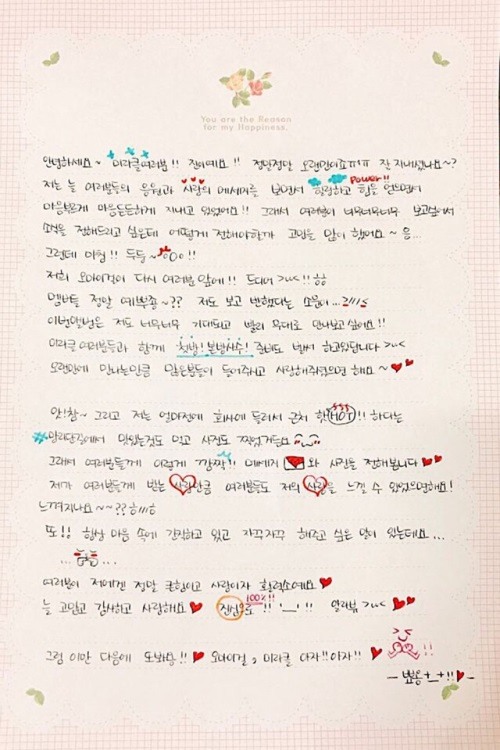 You are the Reason
for my Happiness.
안녕하세요~ 미라클여러분!! 진이예요!! 정말정말 오랜만이죠ㅠㅠ 잘 지내셨나요~?
power!!
저는 늘 여러분들의 응원과 사랑의 메세지를 보면서 힐링하고 힘을 얻으면서
마음뿐만 마음든든하게 지내고 있었어요!! 그래서 여러분이 너무너무너무 보고싶어서
소식을 전해드리고 싶은데 어떻게 전해야할까 고민을 많이 했어요~ 음...
그런데 마침!! 두둥~ !!
저희 오마이걸이 다시 여러분 앞에!! 드디어 >_< !! ㅎㅎ
멤버들 정말 예쁘죵~?? 저도 보고 반했다는 소문이...
이번앨범은 저도 너무너무 기대되고 빨리 무대로 만나보고싶어요!!
미라클 여러분들과 함께 첫방! 본방사수! 준비도 벌써 하고있답니다 >_<
오랜만에 만나는만큼 많은분들이 들어주시고 사랑해주셨으면 해요~
앗!참~ 그리고 저는 얼마전에 회사에 들러서 근처 핫HOT!! 하다는
#망리단길에서 맛있는것도 먹고 사진도 찍었거든요
그래서 여러분들께 이렇게 깜짝!! 메세지 와 사진을 전해봅니다
제가 여러분들께 받는 사랑만큼 여러분들도 저의 사랑을 느낄 수 있었으면해요!
느껴지나요~~?? ㅎ///ㅎ
또!! 항상 마음 속에 간직하고 있고 자꾸자꾸 해주고 싶은 말이 있는데요...
...
여러분이 저에겐 정말 큰힘이고 사랑이자 활력소예요
늘 고맙고 감사하고 사랑해요 진심으로 100%!! !! '__' !! 알라뷰 >_<
그럼 이만 다음에 또봐요!! 오마이걸, 미라클 아자!! 아자!! !!
- 뾰옹 +_+!! -